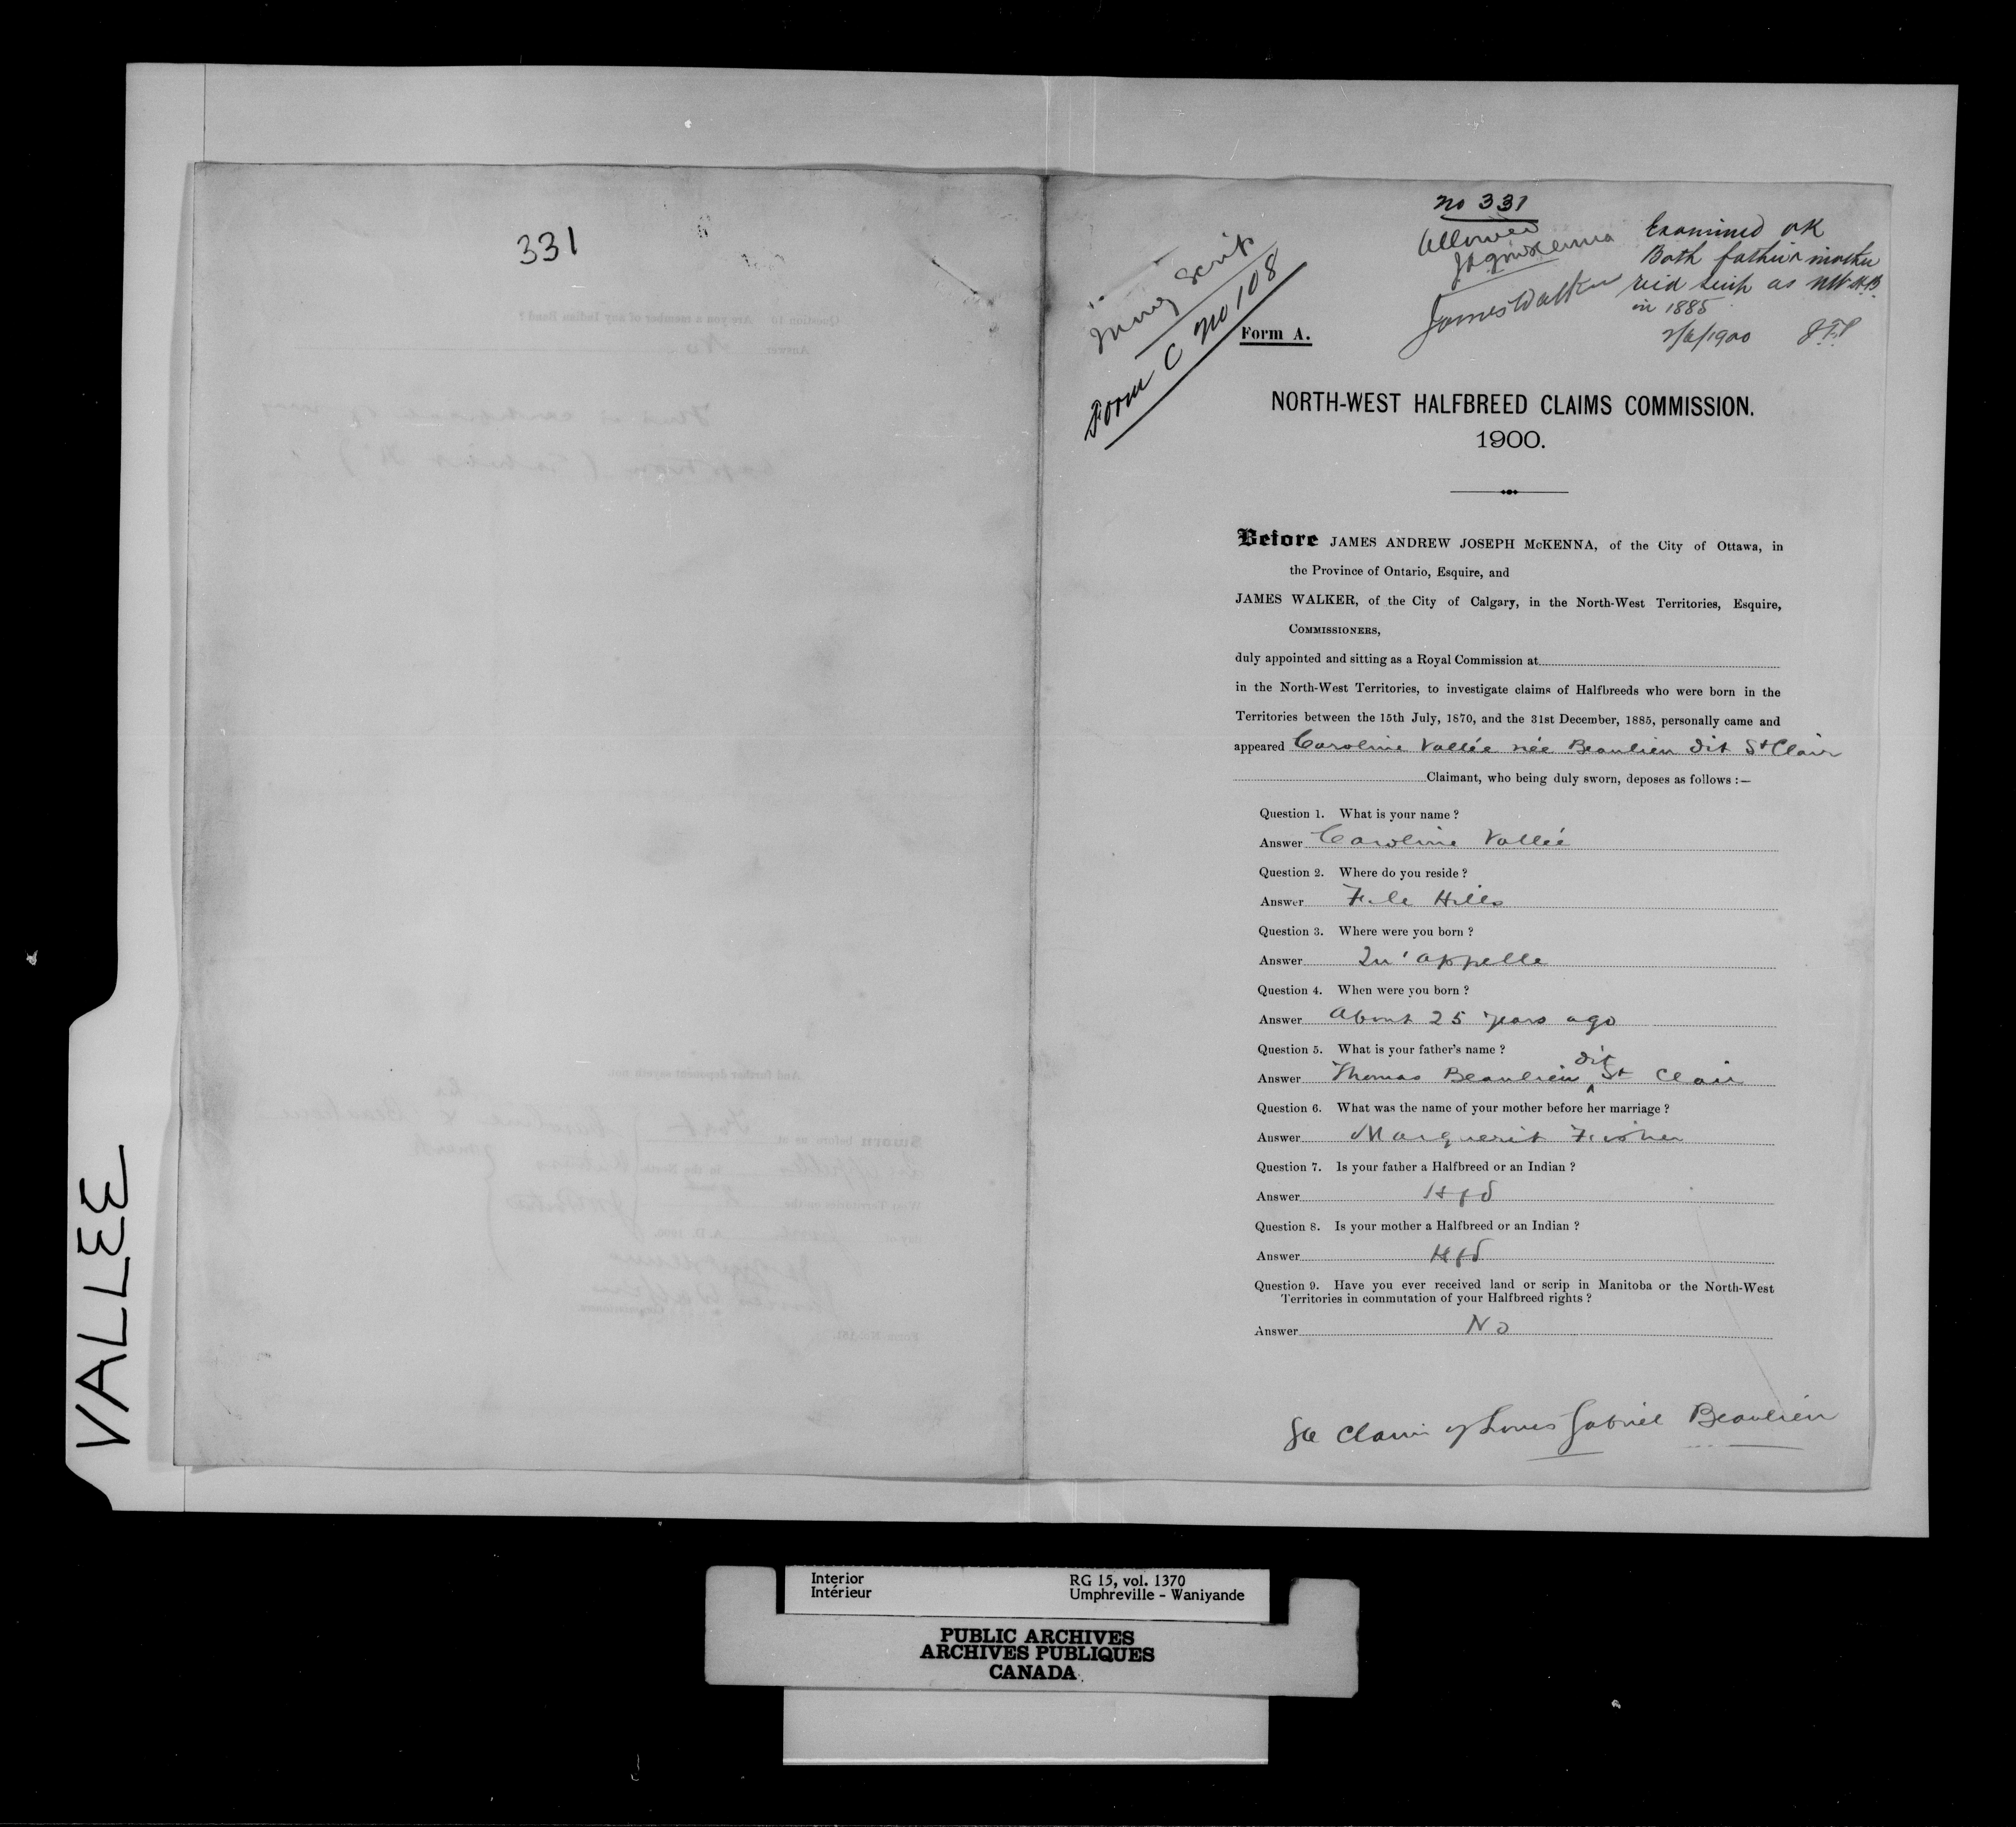 VALLEE
331
no 331
Allowed
JAJ McKenna
James Walker
Examined OK
Both father & mother
rec'd scrip as NWHB
in 1885
2/6/1900 J.F.P
Money Scrip
Form C no 108
Form A.
NORTH-WEST HALFBREED CLAIMS COMMISSION.
1900.
Before JAMES ANDREW JOSEPH McKENNA, of the City of Ottawa, in
the Province of Ontario, Esquire, and
JAMES WALKER, of the City of Calgary, in the North-West Territories, Esquire,
COMMISSIONERS,
duly appointed and sitting as a Royal Commission at
in the North-West Territories, to investigate claims of Halfbreeds who were born in the
Territories between the 15th July, 1870, and the 31st December, 1885, personally came and
appeared Caroline Vallée née Beaulieu dit St Clair
Claimant, who being duly sworn, deposes as follows :—
Question 1. What is your name ?
Answer Caroline Vallée
Question 2. Where do you reside ?
Answer File Hills
Question 3. Where were you born ?
Answer Qu'appelle
Question 4. When were you born ?
Answer About 25 years ago
Question 5. What is your father's name ?
Answer Thomas Beaulieu dit St Clair
Question 6. What was the name of your mother before her marriage ?
Answer Marguerit Fisher
Question 7. Is your father a Halfbreed or an Indian ?
Answer Hfd
Question 8. Is your mother a Halfbreed or an Indian ?
Answer Hfd
Question 9. Have you ever received land or scrip in Manitoba or the North-West
Territories in commutation of your Halfbreed rights ?
Answer No
See Claim of Louis Gabriel Beaulieu
Interior RG 15, vol. 1370
Intérieur Umphreville - Waniyande
PUBLIC ARCHIVES
ARCHIVES PUBLIQUES
CANADA